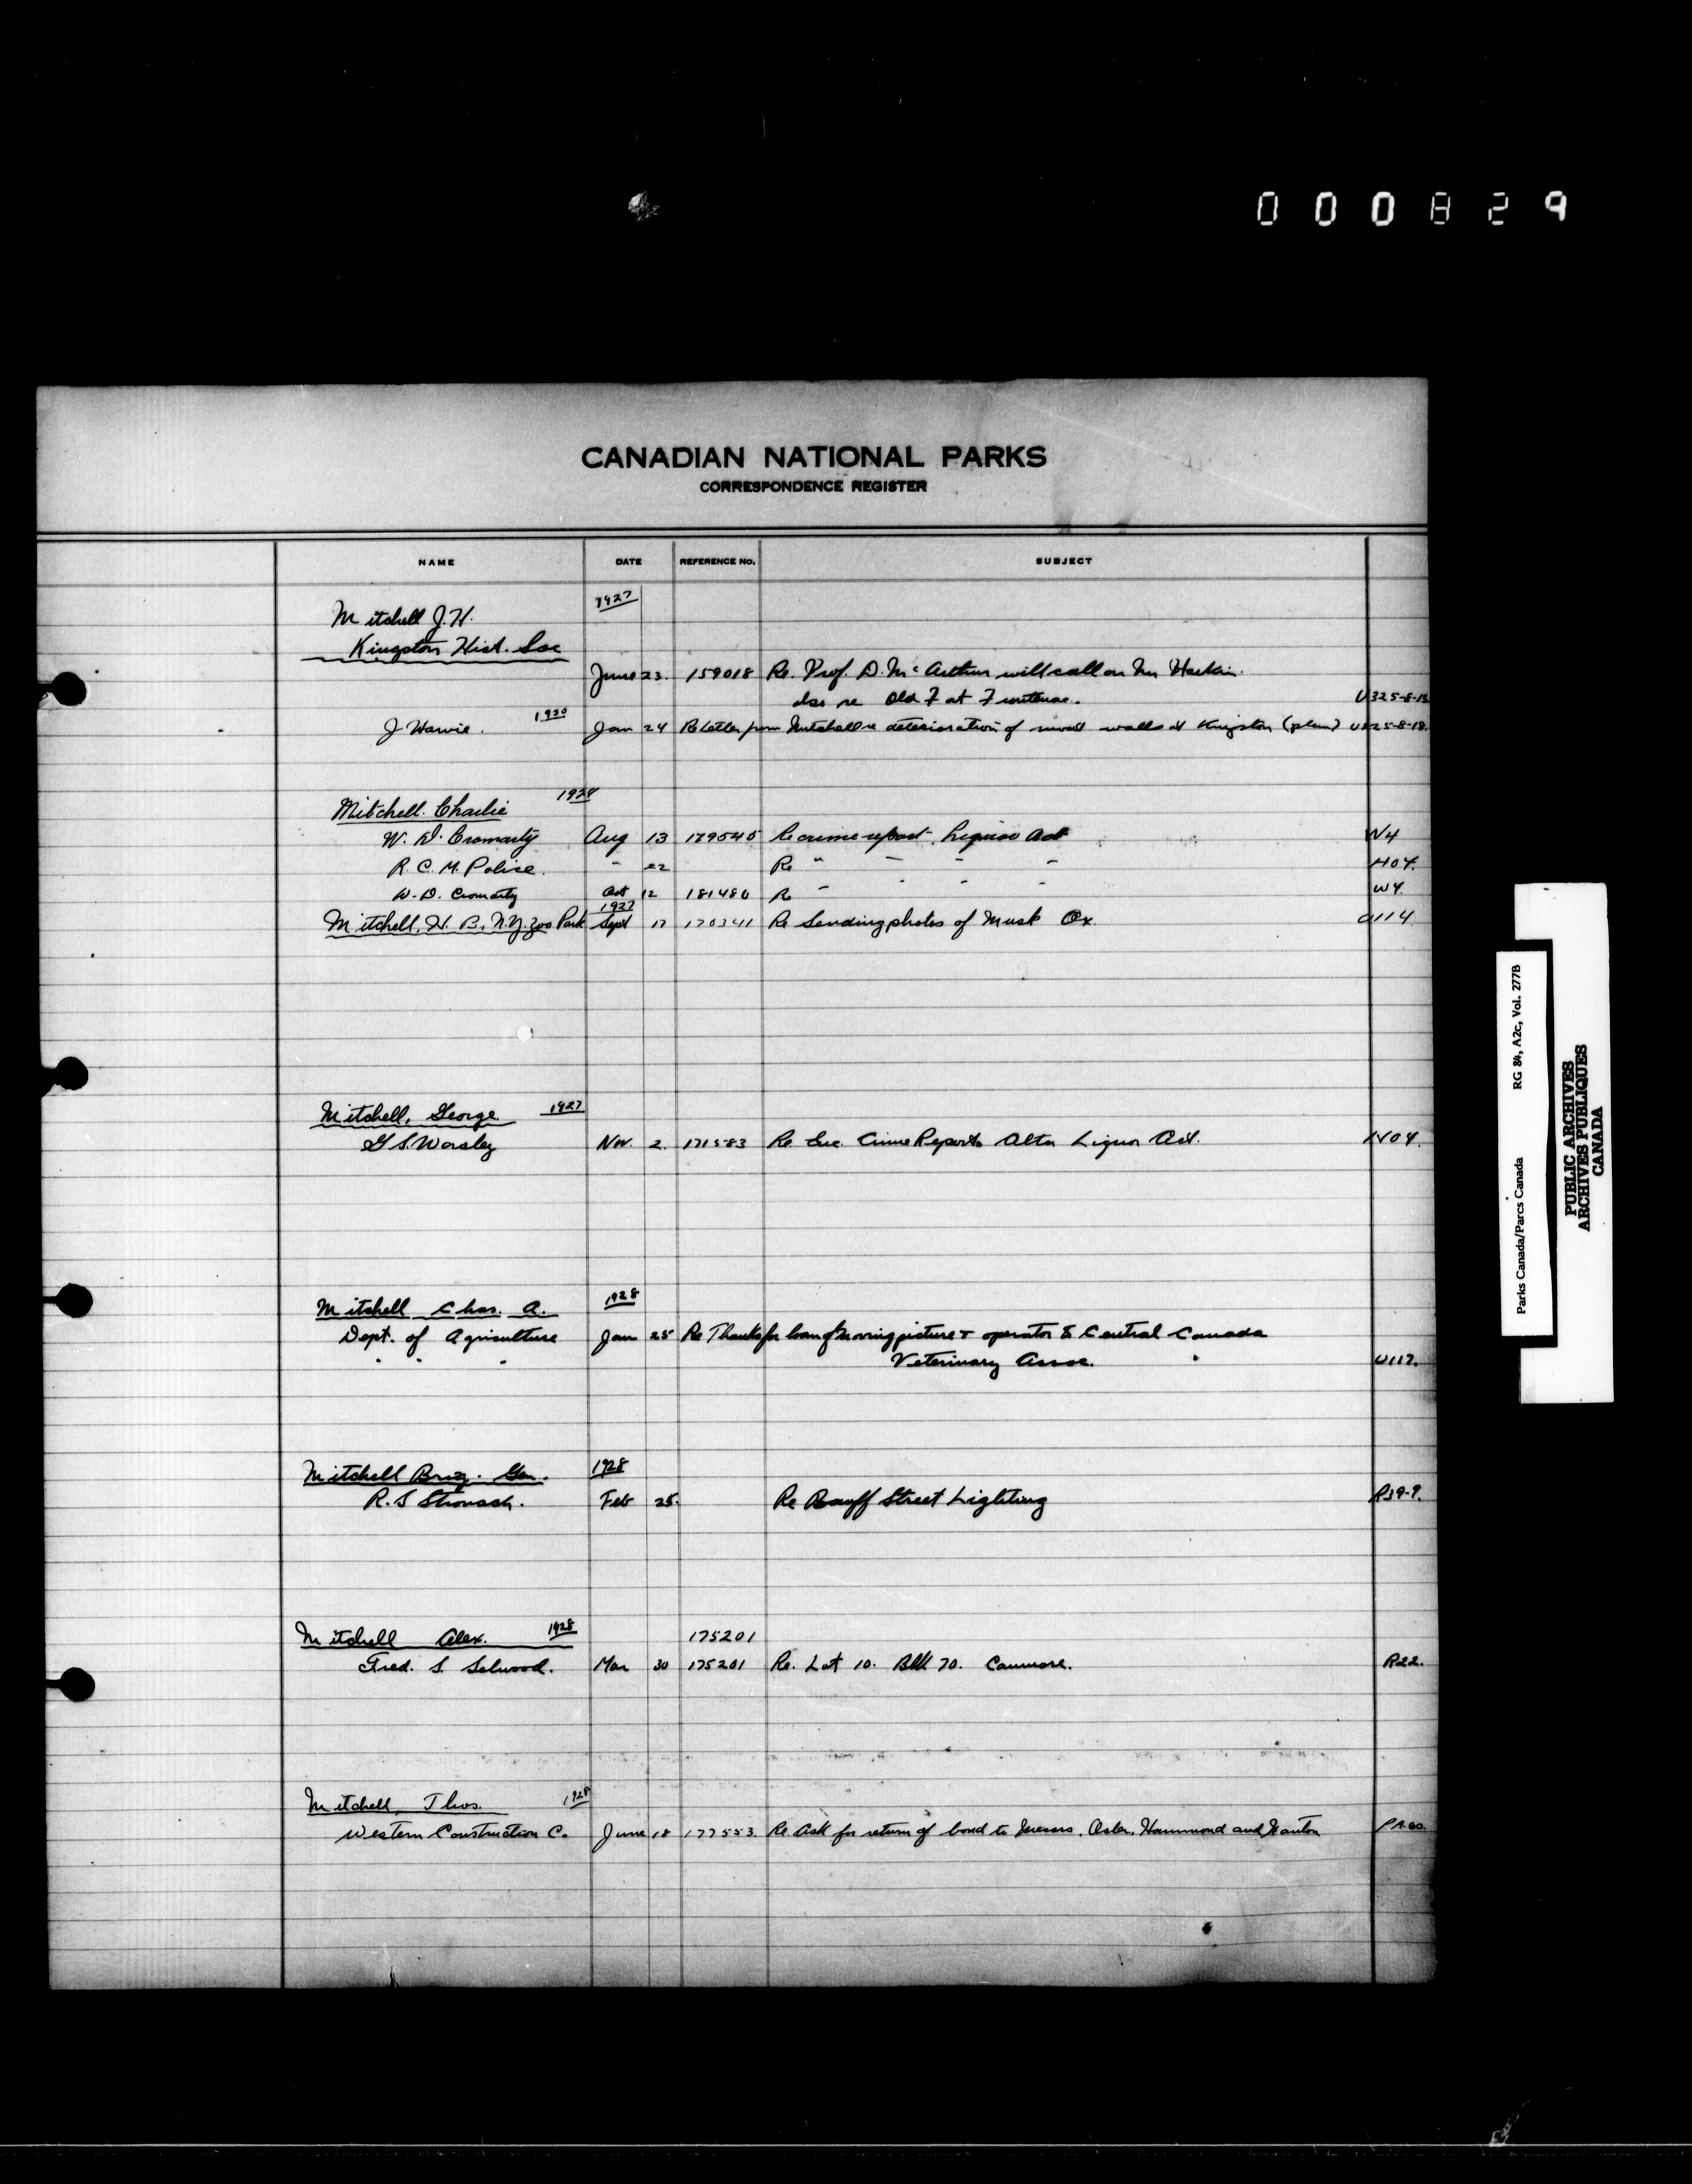 000829
CANADIAN NATIONAL PARKS
CORRESPONDENCE REGISTER
NAME DATE REFERENCE NO. SUBJECT
1927
Mitchell J.H.
Kingston Hist. Soc
June 23. 159018 Re. Prof. D. McArthur will call on Mr Harkin.
also re Old F at Frontenac. U325-8-18
J Harvie. 1930 Jan 24 Re Letter from Mitchell re deterioration of moat walls at Kingston (plan) U325-8-18.
Mitchell. Charlie 1928
W. D. Cromarty Aug 13 179545 Re crime report Liquor Act W4
R. C. M. Police. " 22 Re " " " " H04.
W. D. Cromarty Oct 12 181480 Re " " " " W4.
1927
Mitchell, H. B, N.Y. Zoo Park Sept 17 170341 Re Sending photos of Musk Ox. U114.
Mitchell, George 1927
G S. Worsley Nov. 2. 171583 Re. Enc. Crime Reports Alta Liquor Act. H04.
Mitchell Chas. A. 1928
Dept. of Agriculture Jan 25 Re Thanks for loan of moving picture & operator to Central Canada
" " " Veterinary Assoc. U117.
Mitchell Brig. Gen. 1928
R. S Stronach. Feb 25. Re Banff Street Lighting R39-9.
Mitchell Alex. 1928 175201
Fred. S. Selwood. Mar 30 175201 Re. Lot 10. Blk 70. Canmore. R22.
Mitchell, Thos. 1928
Western Construction Co June 18 177553. Re. Ask for return of bond to Messrs. Osler, Hammond and Nanton
Parks Canada/Parcs Canada RG 84, A2c, Vol. 277B
PUBLIC ARCHIVES
ARCHIVES PUBLIQUES
CANADA